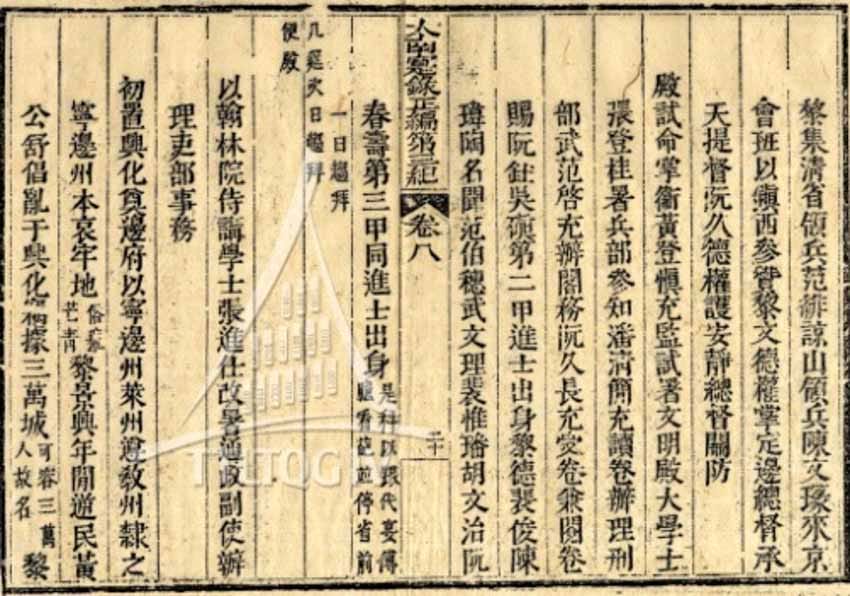 黎集清省領兵范緋諒山領兵陳文璩來京
會班以鎮西參贊黎文德權掌定邊總督承
天提督阮久德權護安靜總督關防
殿試命掌衛黃登慎充監試署文明殿大學士
張登桂署兵部參知潘清簡充讀卷辦理刑
部武范啓充辦閣務阮久長充受卷兼閱卷
賜阮鉒吳碩第二甲進士出身黎德裴俊陳
陶名聞范伯穗武文理裴惟璠胡文治阮
大南寔錄正編第二紀 卷八 二十
春壽第三甲同進士出身是科以銀代宴傳
臚看葩並停省前
一日趨拜
几廷次日趨拜
便殿
以翰林院侍講學士張進仕改署通政副使辦
理吏部事務
初置興化奠邊府以寧邊州萊州遵教州隸之
寧邊州本哀牢地俗
芒青黎景興年間逆民黃
公舒倡亂于興化據三萬城可容三萬
人故名黎
TTLTQG